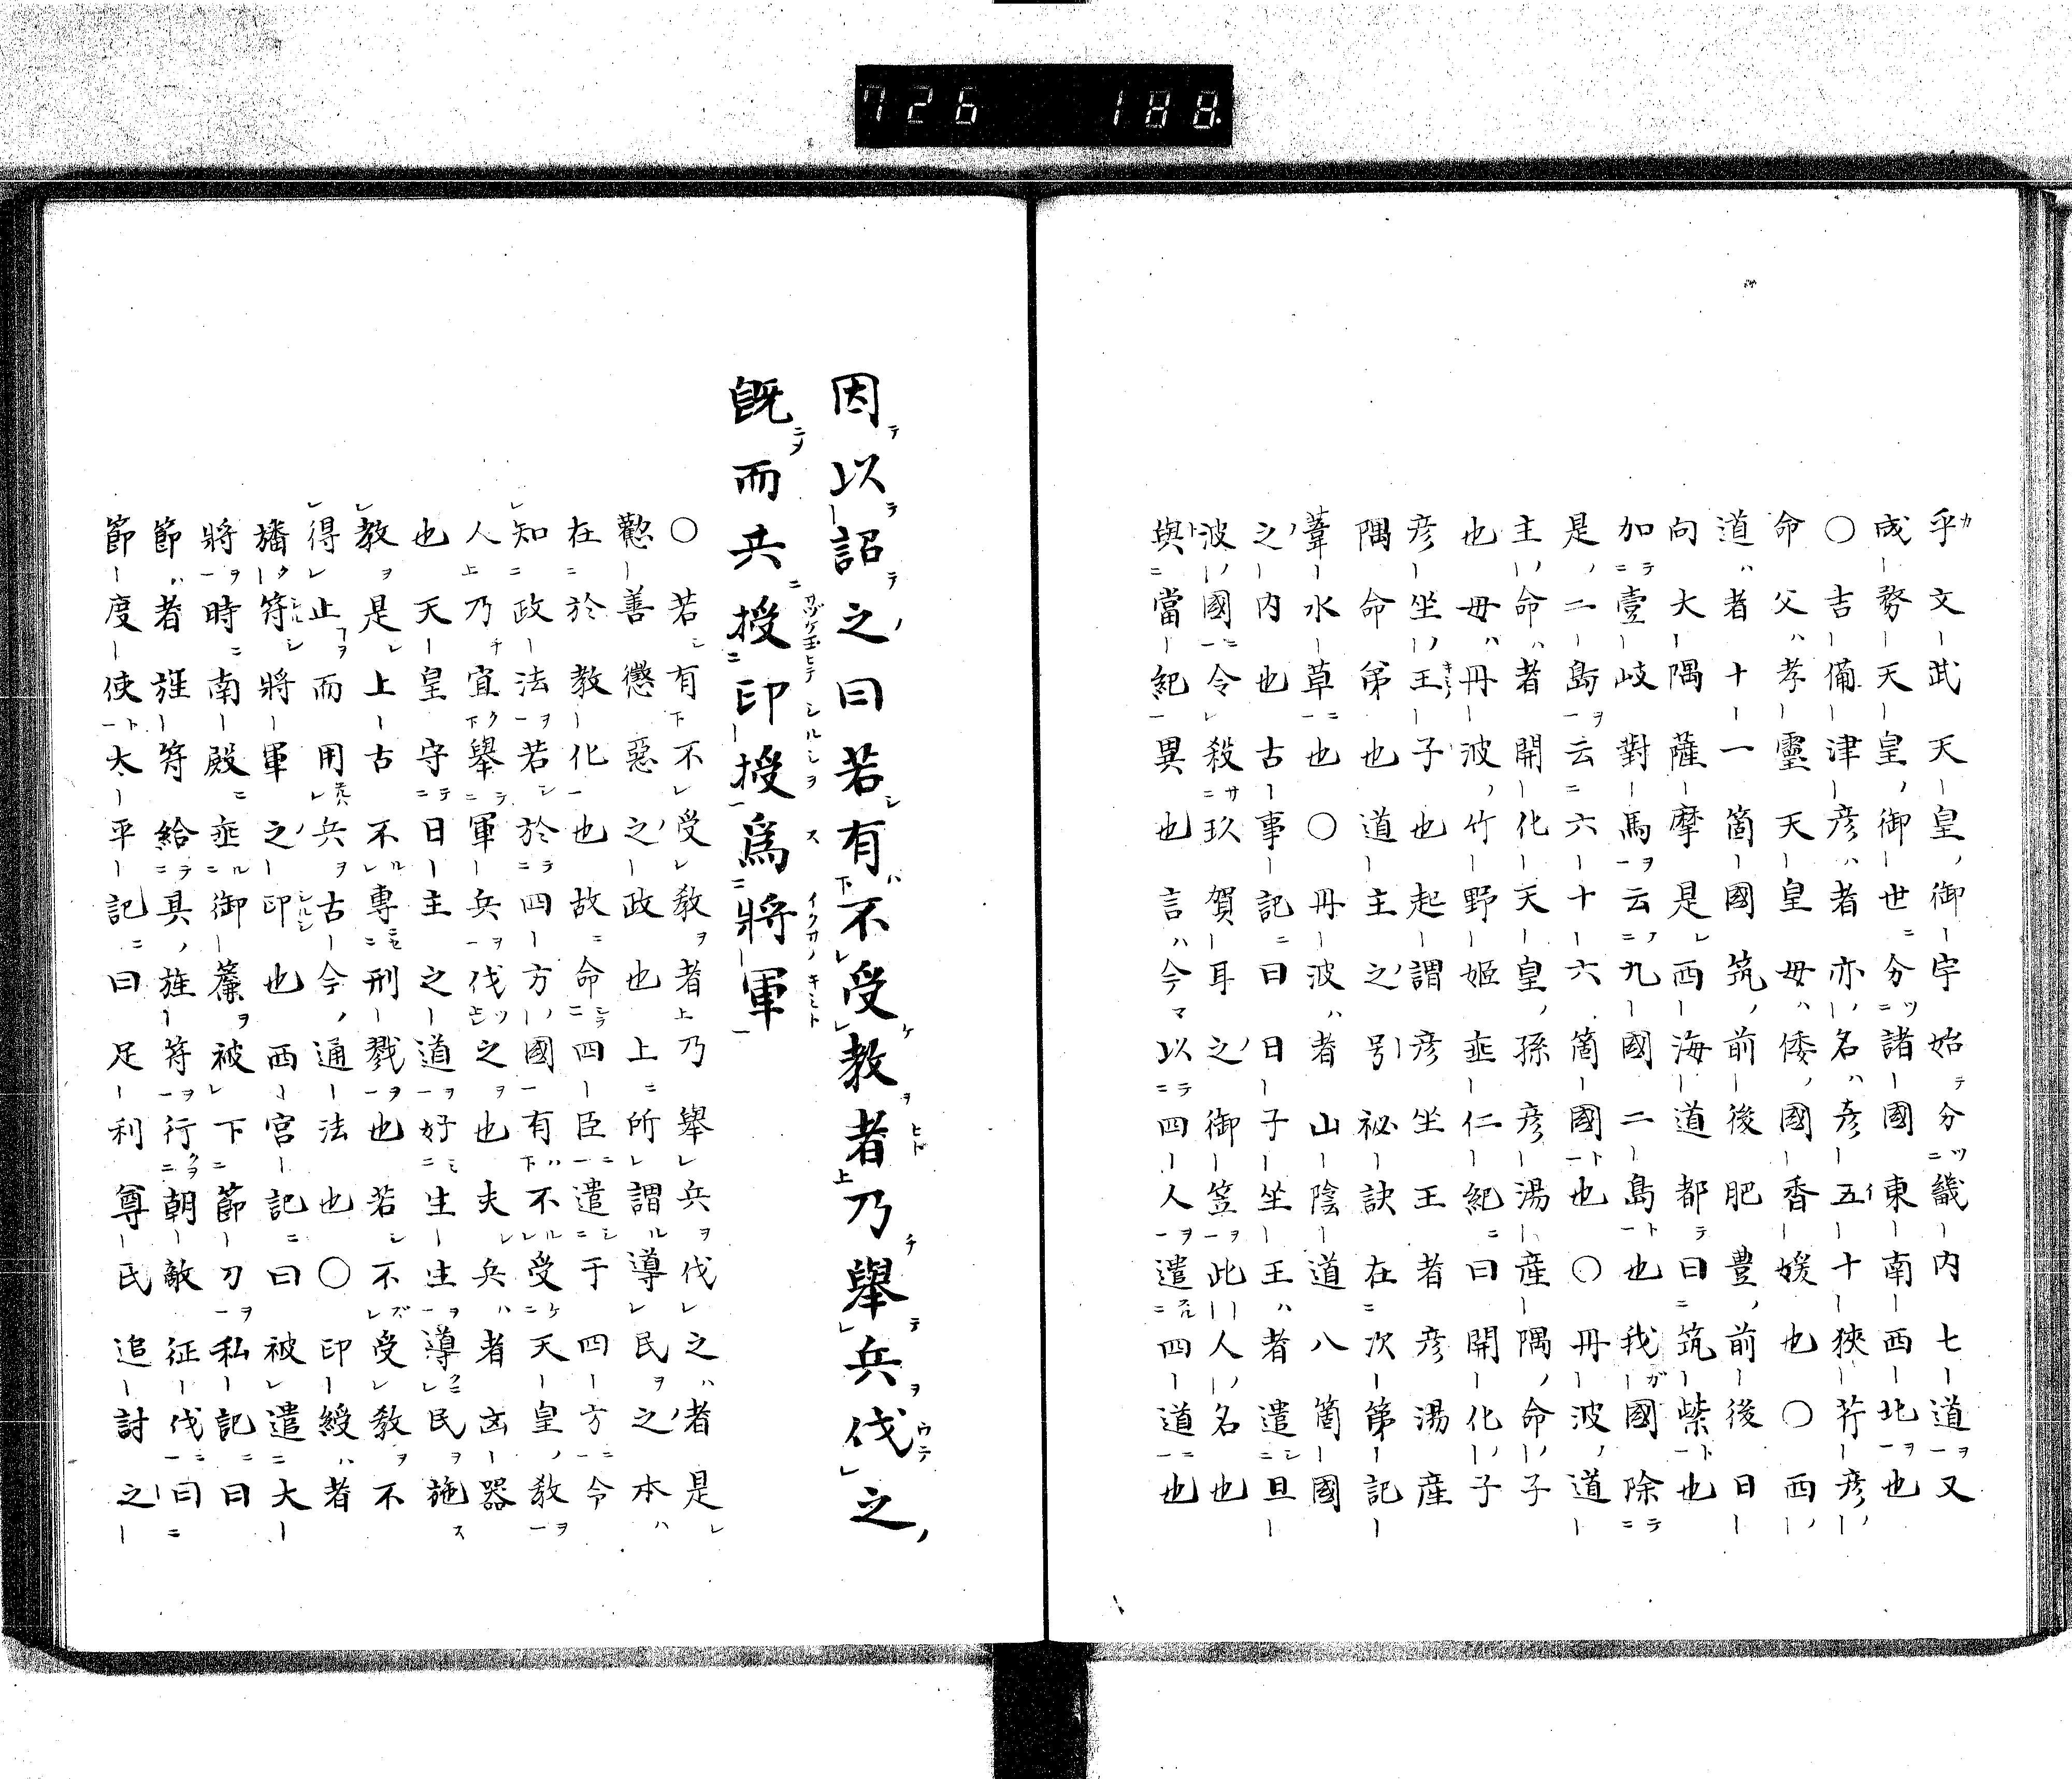 726 188
乎文武天皇御宇始分畿内七道又
成務天皇御世分諸國東南西北也
〇吉備津彦者亦名彦五十狹芹彦
命父孝靈天皇毋倭國香媛也〇西
道者十一箇國筑前後肥豊前後日
向大隅薩摩是西海道都曰筑紫也
加壹岐對馬云九國二島也我國除
是二島云六十六箇國也〇丹波道
主命者開化天皇孫彦湯産隅命子
也毋丹波竹野姫埀仁紀曰開化子
彦坐王子也起謂彦坐王者彦湯産
隅命第也道主之号祕訣在次第記
葦水草也〇丹波者山陰道八箇國
之内也古事記曰日子坐王者遣旦
波國令殺玖賀耳之御笠此人名也
與當紀異也言今以四人遣四道也
因以詔之曰若有不受教者乃舉兵伐之
既而兵授印授爲將軍
〇若有不受教者乃舉兵伐之者是
勸善懲惡之政也上所謂導民之本
在於教化也故命四臣遣于四方令
知政法若於四方國有不受天皇教
人乃宜舉軍兵伐之也夫兵者凶器
也天皇守日主之道好生生導民施
教是上古不專刑戮也若不受教不
得止而用兵古今通法也〇印綬者
旛符將軍之印也西宮記曰被遣大
將時南殿埀御簾被下節刀私記曰
節者旌符給具旌符行朝敵征伐曰
節度使太平記曰足利尊氏追討之